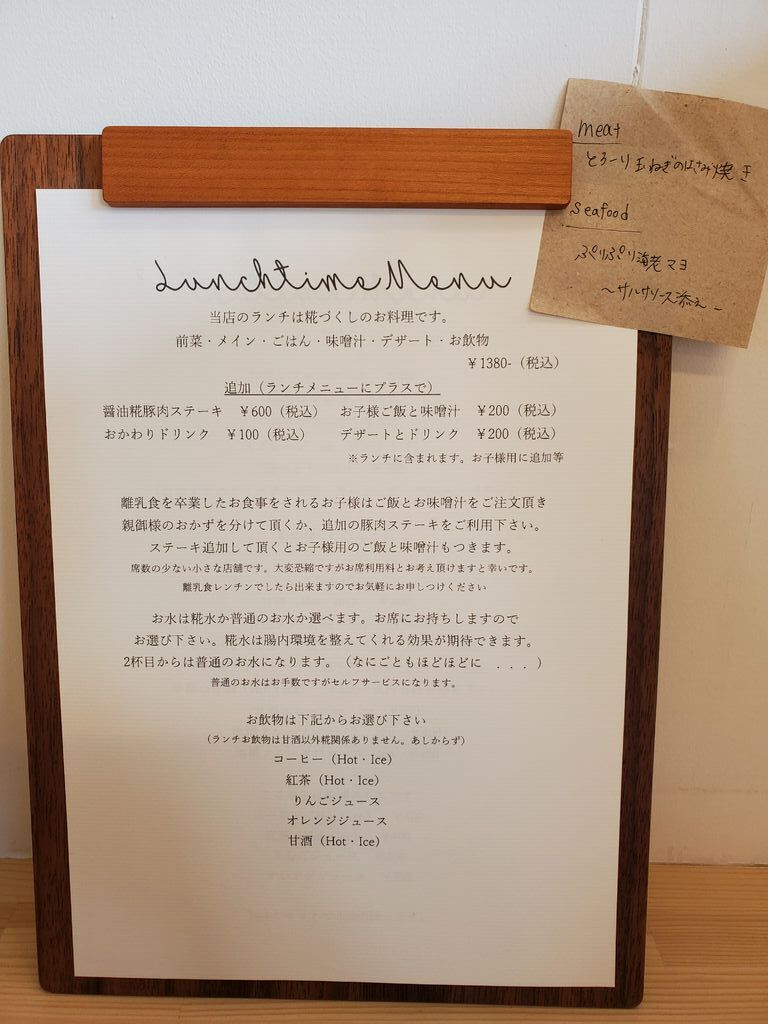 meat
とろーり玉ねぎのはさみ焼き
seafood
ぷりぷり海老マヨ
～サルサソース添え～
Lunchtime Menu
当店のランチは糀づくしのお料理です。
前菜・メイン・ごはん・味噌汁・デザート・お飲物
￥1380-（税込）
追加（ランチメニューにプラスで）
醤油糀豚肉ステーキ　￥600（税込）　お子様ご飯と味噌汁　￥200（税込）
おかわりドリンク　￥100（税込）　デザートとドリンク　￥200（税込）
※ランチに含まれます。お子様用に追加等
離乳食を卒業したお食事をされるお子様はご飯とお味噌汁をご注文頂き
親御様のおかずを分けて頂くか、追加の豚肉ステーキをご利用下さい。
ステーキ追加して頂くとお子様用のご飯と味噌汁もつきます。
席数の少ない小さな店舗です。大変恐縮ですがお席利用料とお考え頂けますと幸いです。
離乳食レンチンでしたら出来ますのでお気軽にお申しつけください
お水は糀水か普通のお水か選べます。お席にお持ちしますので
お選び下さい。糀水は腸内環境を整えてくれる効果が期待できます。
2杯目からは普通のお水になります。（なにごともほどほどに　．．．）
普通のお水はお手数ですがセルフサービスになります。
お飲物は下記からお選び下さい
（ランチお飲物は甘酒以外糀関係ありません。あしからず）
コーヒー（Hot・Ice）
紅茶（Hot・Ice）
りんごジュース
オレンジジュース
甘酒（Hot・Ice）